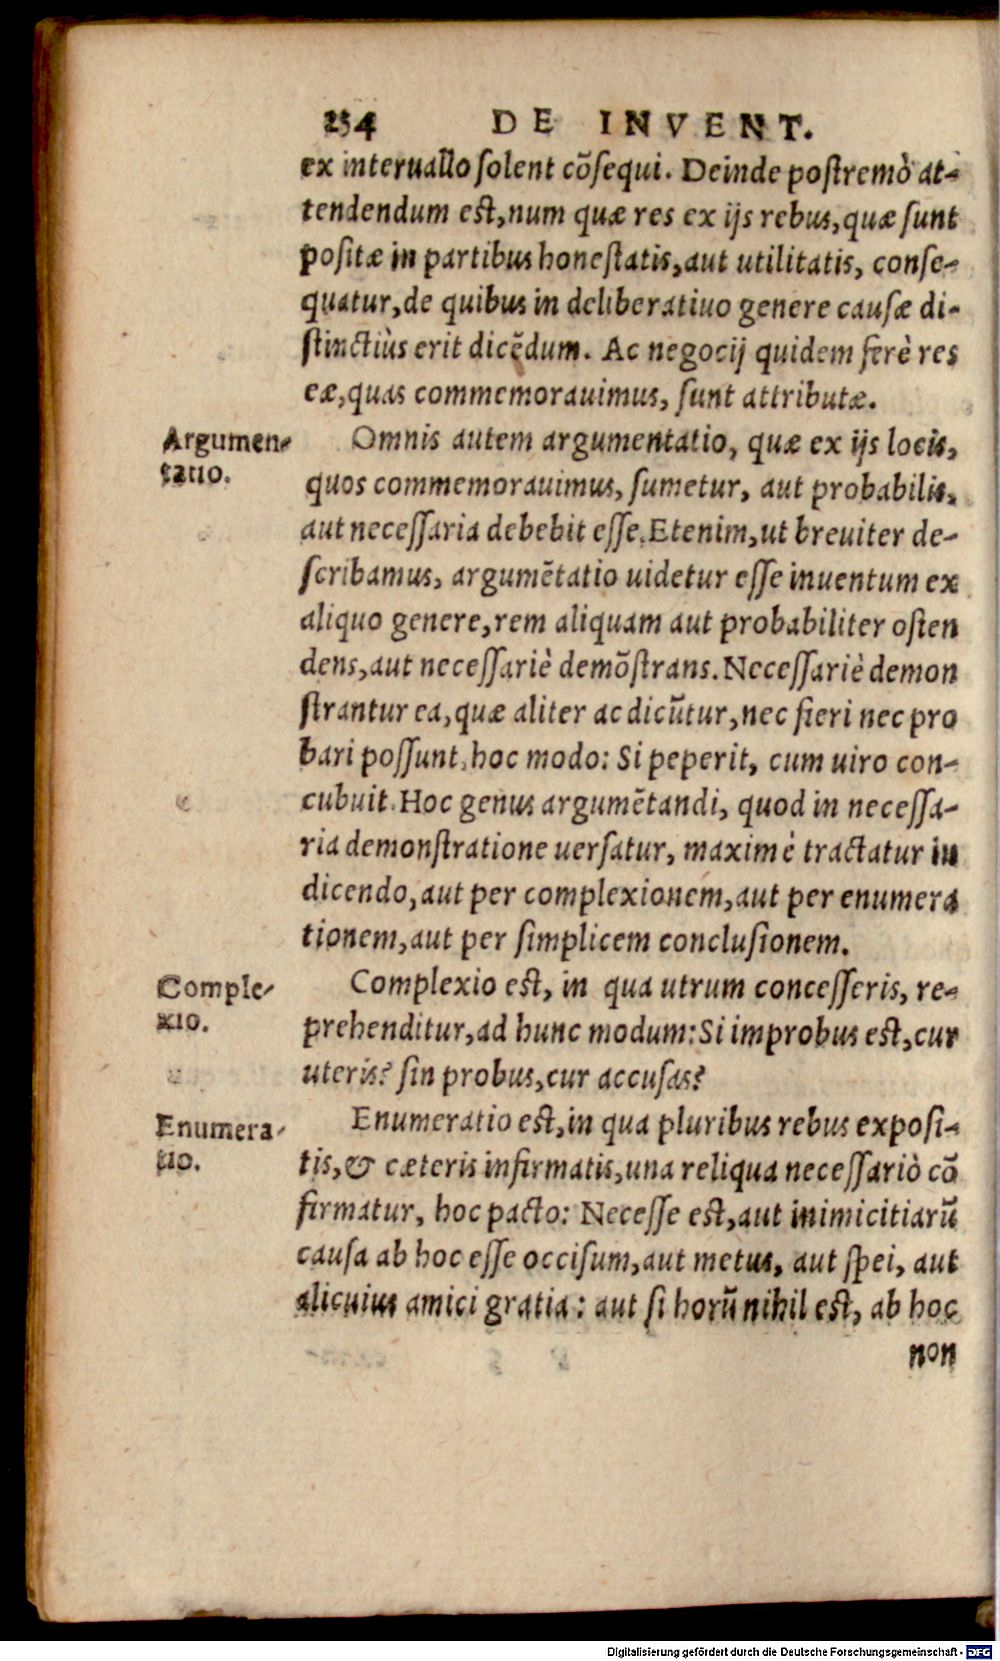 234 DE INVENT.
ex interuallo solent cõsequi. Deinde postremò at-
tendendum est, num quæ res ex ijs rebus, quæ sunt
positæ in partibus honestatis, aut utilitatis, conse-
quatur, de quibus in deliberatiuo genere causæ di-
stinctiùs erit dicẽdum. Ac negocij quidem ferè res
eæ, quas commemorauimus, sunt attributæ.
Argumen-
tatio.
Omnis autem argumentatio, quæ ex ijs locis,
quos commemorauimus, sumetur, aut probabilis,
aut necessaria debebit esse. Etenim, ut breuiter de-
scribamus, argumẽtatio uidetur esse inuentum ex
aliquo genere, rem aliquam aut probabiliter osten
dens, aut necessariè demõstrans. Necessariè demon
strantur ea, quæ aliter ac dicũtur, nec fieri nec pro
bari possunt, hoc modo: Si peperit, cum uiro con-
cubuit. Hoc genus argumẽtandi, quod in necessa-
ria demonstratione uersatur, maximè tractatur in
dicendo, aut per complexionem, aut per enumera
tionem, aut per simplicem conclusionem.
Comple-
xio.
Complexio est, in qua utrum concesseris, re-
prehenditur, ad hunc modum: Si improbus est, cur
uteris? sin probus, cur accusas?
Enumera-
tio.
Enumeratio est, in qua pluribus rebus exposi-
tis, & cæteris infirmatis, una reliqua necessariò cõ
firmatur, hoc pacto: Necesse est, aut inimicitiarũ
causa ab hoc esse occisum, aut metus, aut spei, aut
alicuius amici gratia: aut si horũ nihil est, ab hoc
non
Digitalisierung gefördert durch die Deutsche Forschungsgemeinschaft - DFG